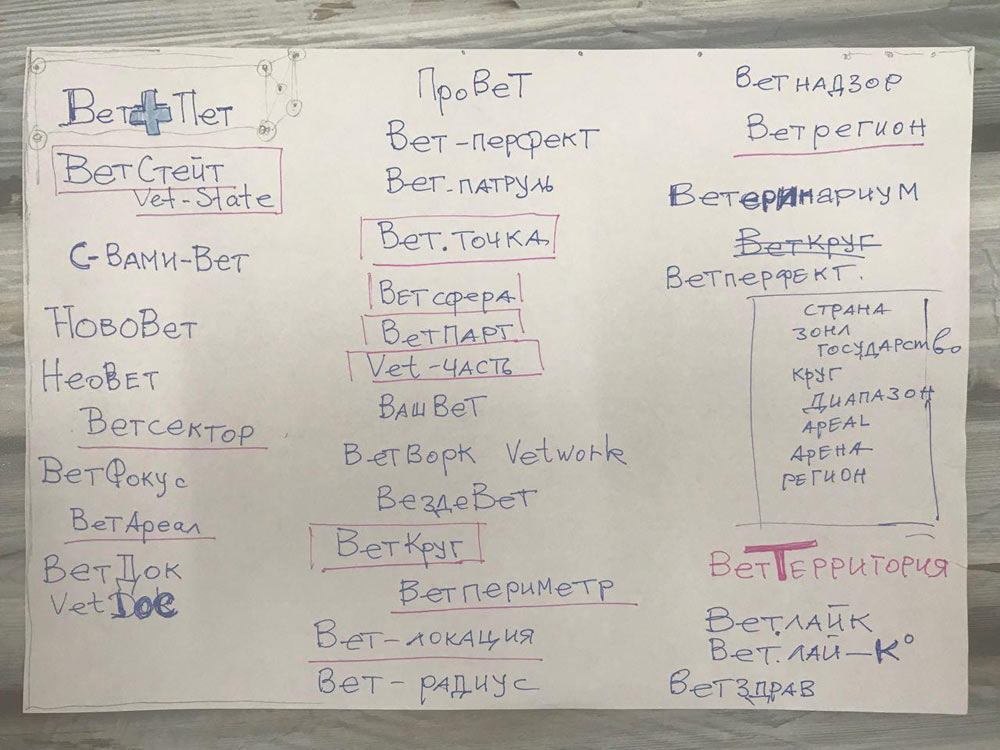 Вет+Пет
ВетСтейт
Vet-State
С-Вами-Вет
НовоВет
НеоВет
Ветсектор
ВетФокус
ВетАреал
ВетДок
VetDoc
ПроВет
Вет-перфект
Вет-патруль
Вет.точка
Ветсфера
ВетПарт
Vet-часть
ВашВет
ВетВорк Vetwork
ВездеВет
ВетКруг
Ветпериметр
Вет-локация
Вет-радиус
Ветнадзор
Ветрегион
Ветеринариум
ВетКруг
Ветперфект.
СТРАНА
ЗОНА
ГОСУДАРСТВО
КРУГ
ДИАПАЗОН
АРЕАЛ
АРЕНА
РЕГИОН
ВетТерритория
Вет.лайк
Вет.лай-К°
Ветздрав